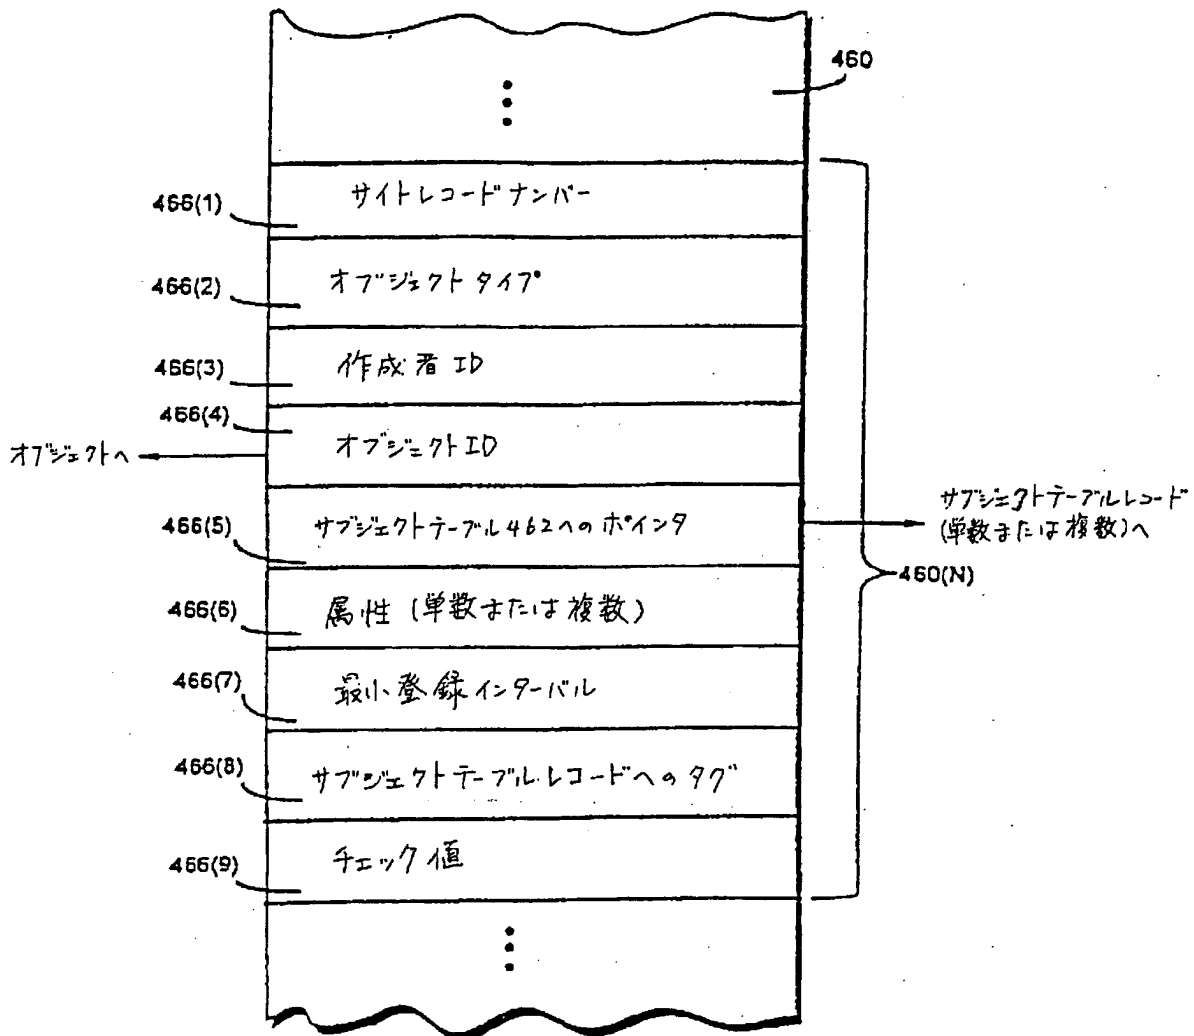 460
466(1)
サイトレコードナンバー
466(2)
オブジェクトタイプ
466(3)
作成者ID
466(4)
オブジェクトID
オブジェクトへ
466(5)
サブジェクトテーブル462へのポインタ
サブジェクトテーブルレコード
(単数または複数)へ
460(N)
466(6)
属性(単数または複数)
466(7)
最小登録インターバル
466(8)
サブジェクトテーブル・レコードへのタグ
466(9)
チェック値